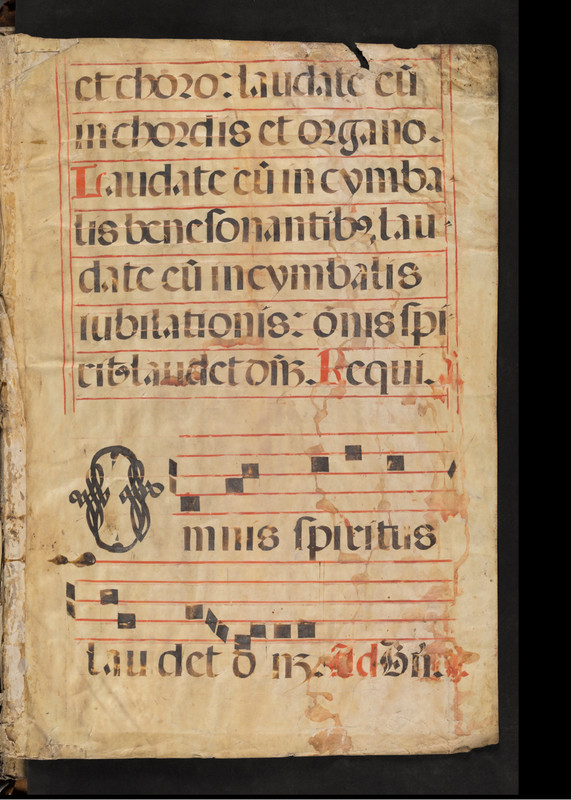 et choro: laudate eū
in chordis et organo.
Laudate eū in cymba
lis bene sonantibꝰ, lau
date eū in cymbalis
iubilationis: ōnis spi
ritꝰ laudet dn̄ꝫ. Requi.
Omnis spiritus
laudet dn̄ꝫ. Ad Bn̄.